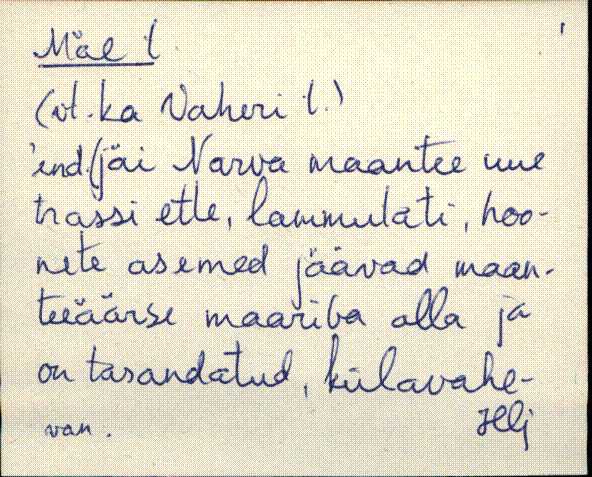 Mäe t
(vt. ka Vaheri t.)
'end. (jäi Narva maantee uue
trassi ette, lammutati, hoo-
nete asemed jäävad maan-
teeäärse maariba alla ja
on tasandatud, külavahe-
van.